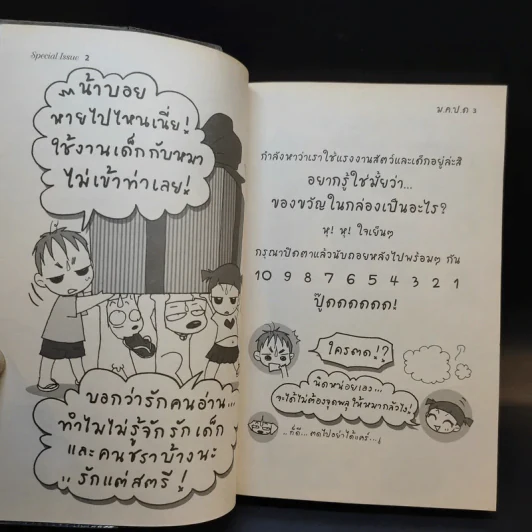 Special Issue 2
น้าบอย
หายไปไหนเนี่ย!
ใช้งานเด็กกับหมา
ไม่เข้าท่าเลย!
บอกว่ารักคนอ่าน...
ทำไมไม่รู้จักรักเด็ก
และคนชราบ้างนะ
..รักแต่สตรี!
ม.ค.ป.ด 3
กำลังหาว่าเราใช้แรงงานสัตว์และเด็กอยู่ล่ะสิ
อยากรู้ใช่มั้ยว่า...
ของขวัญในกล่องเป็นอะไร?
หุ! หุ! ใจเย็นๆ
กรุณาปิดตาแล้วนับถอยหลังไปพร้อมๆ กัน
10 9 8 7 6 5 4 3 2 1
ปู๊ดดดดดด!
ใครตด!?
นิดหน่อยเอง...
จะได้ไม่ต้องจุดพลุให้หมากลัวไง!
..ก็ดี...ตดไปอย่าได้แคร์...!